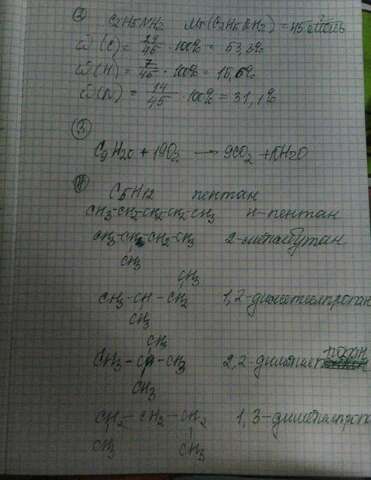 ②
C2H5NH2 Mr(C2H5NH2) = 45 г/моль
ω(C) = 24/45 · 100% = 53,3%
ω(H) = 7/45 · 100% = 15,6%
ω(N) = 14/45 · 100% = 31,1%
③
C9H20 + 19O2 → 9CO2 +
④
C5H12 пентан
CH3-CH2-CH2-CH2-CH3 н-пентан
CH3-CH-CH2-CH3 2-метилбутан
CH3
CH3
CH3-CH-CH2 1,2-диметилпропан
CH3
CH3
CH3-C-CH3 2,2-диметил пропан
CH3
CH2-CH2-CH2 1,3-диметилпропа
CH3 CH3